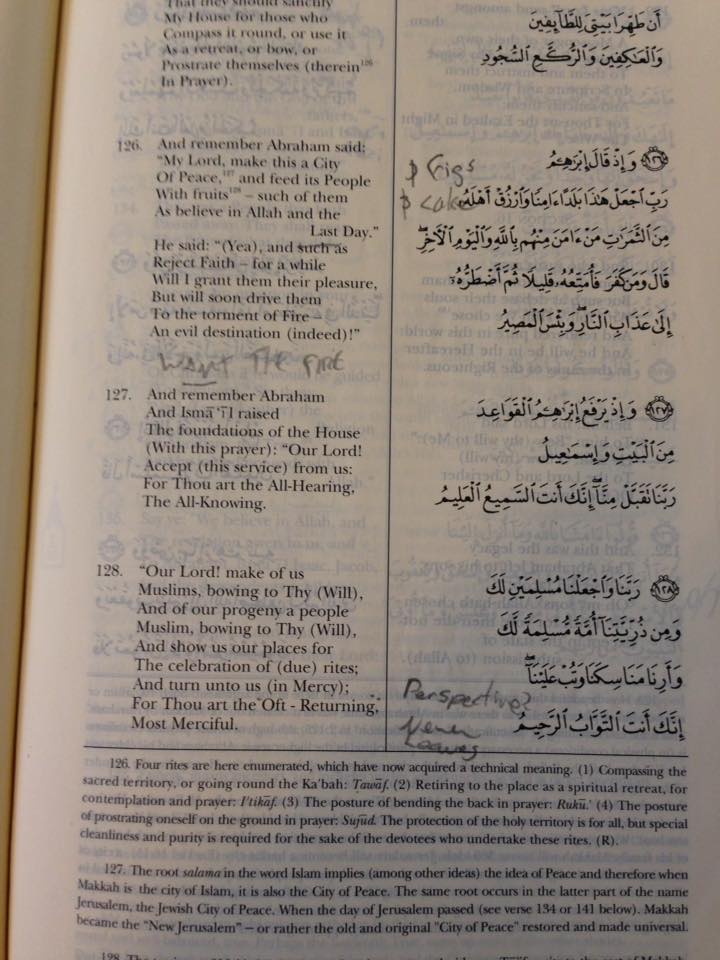 That they should sanctify
My House for those who
Compass it round, or use it
As a retreat, or bow, or
Prostrate themselves (therein¹²⁶
In Prayer).
أَن طَهِّرَا بَيْتِىَ لِلطَّآئِفِينَ
وَالْعَٰكِفِينَ وَالرُّكَّعِ السُّجُودِ
126. And remember Abraham said:
"My Lord, make this a City
Of Peace,¹²⁷ and feed its People
With fruits¹²⁸ – such of them
As believe in Allah and the
Last Day."
He said: "(Yea), and such as
Reject Faith – for a while
Will I grant them their pleasure,
But will soon drive them
To the torment of Fire –
An evil destination (indeed)!"
Want The FIRE
Figs
١٢٦ وَإِذْ قَالَ إِبْرَٰهِـۧمُ
رَبِّ اجْعَلْ هَٰذَا بَلَدًا ءَامِنًا وَارْزُقْ أَهْلَهُۥ
مِنَ الثَّمَرَٰتِ مَنْ ءَامَنَ مِنْهُم بِاللَّهِ وَالْيَوْمِ الْأَخِرِ ۖ
قَالَ وَمَن كَفَرَ فَأُمَتِّعُهُۥ قَلِيلًا ثُمَّ أَضْطَرُّهُۥٓ
إِلَىٰ عَذَابِ النَّارِ ۖ وَبِئْسَ الْمَصِيرُ
127. And remember Abraham
And Ismā'īl raised
The foundations of the House
(With this prayer): "Our Lord!
Accept (this service) from us:
For Thou art the All-Hearing,
The All-Knowing.
١٢٧ وَإِذْ يَرْفَعُ إِبْرَٰهِـۧمُ الْقَوَاعِدَ
مِنَ الْبَيْتِ وَإِسْمَٰعِيلُ
رَبَّنَا تَقَبَّلْ مِنَّآ ۖ إِنَّكَ أَنتَ السَّمِيعُ الْعَلِيمُ
128. "Our Lord! make of us
Muslims, bowing to Thy (Will),
And of our progeny a people
Muslim, bowing to Thy (Will),
And show us our places for
The celebration of (due) rites;
And turn unto us (in Mercy);
For Thou art the Oft - Returning,
Most Merciful.
١٢٨ رَبَّنَا وَاجْعَلْنَا مُسْلِمَيْنِ لَكَ
وَمِن ذُرِّيَّتِنَآ أُمَّةً مُّسْلِمَةً لَّكَ
وَأَرِنَا مَنَاسِكَنَا وَتُبْ عَلَيْنَآ ۖ
إِنَّكَ أَنتَ التَّوَّابُ الرَّحِيمُ
Perspective?
Never
Leaves
126. Four rites are here enumerated, which have now acquired a technical meaning. (1) Compassing the
sacred territory, or going round the Ka'bah: Tawāf. (2) Retiring to the place as a spiritual retreat, for
contemplation and prayer: I'tikāf. (3) The posture of bending the back in prayer: Rukū.' (4) The posture
of prostrating oneself on the ground in prayer: Sujūd. The protection of the holy territory is for all, but special
cleanliness and purity is required for the sake of the devotees who undertake these rites. (R).
127. The root salama in the word Islam implies (among other ideas) the idea of Peace and therefore when
Makkah is the city of Islam, it is also the City of Peace. The same root occurs in the latter part of the name
Jerusalem, the Jewish City of Peace. When the day of Jerusalem passed (see verse 134 or 141 below). Makkah
became the "New Jerusalem" – or rather the old and original "City of Peace" restored and made universal.